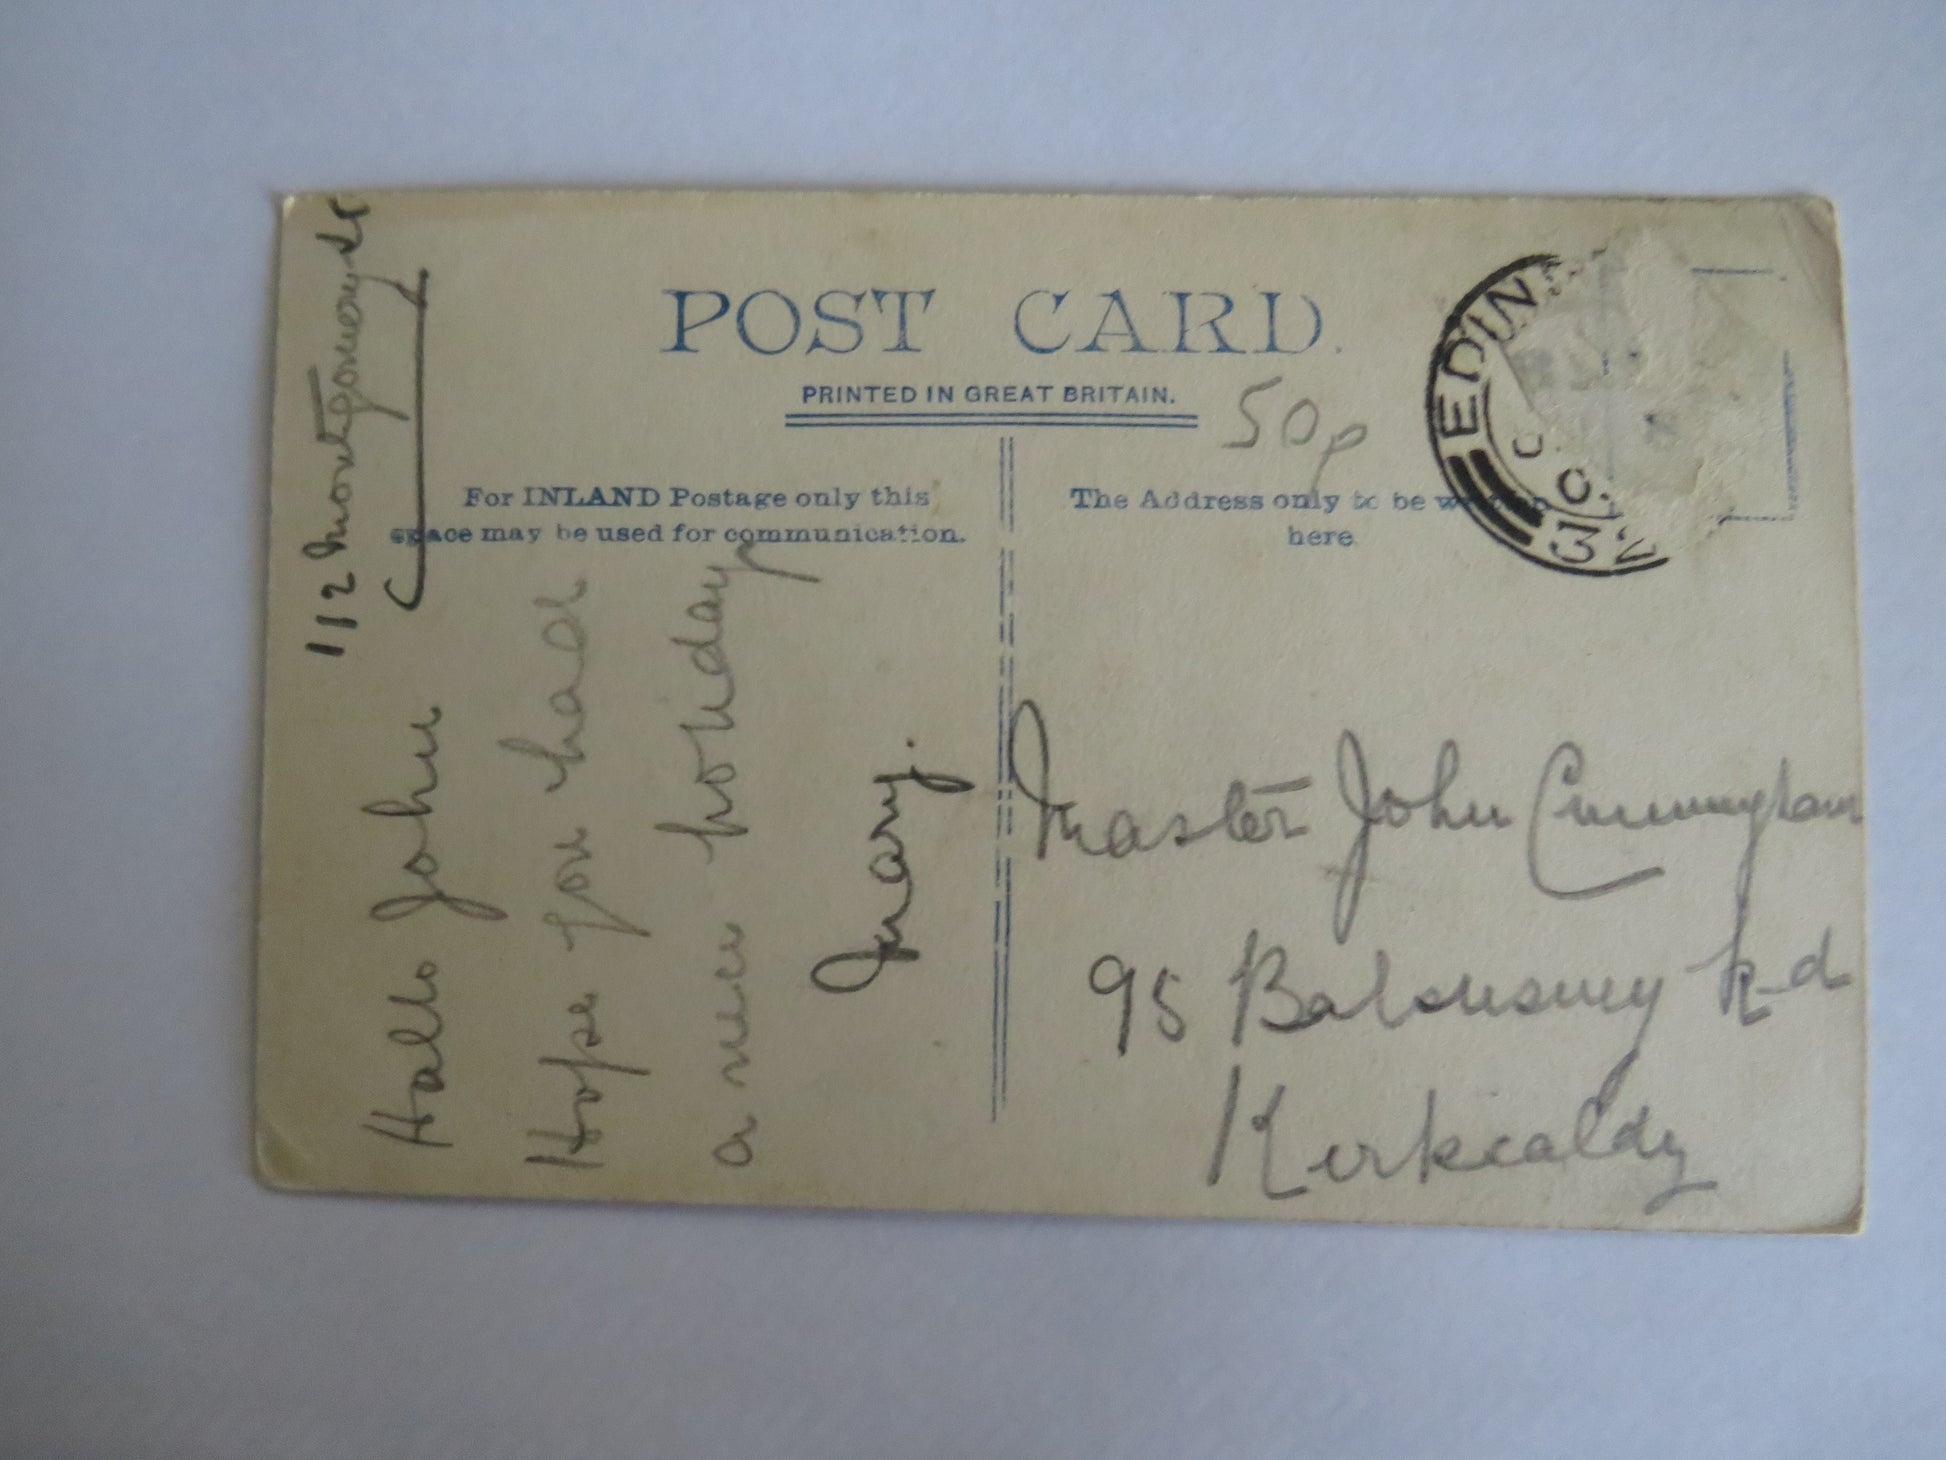 POST CARD.
PRINTED IN GREAT BRITAIN.
50p
EDIN
For INLAND Postage only this
space may be used for communication.
The Address only to be
here
112 Montgomery St
Hallo John
Hope you had
a nice holiday
Mary.
Master John Cunningham
95 Balsusney Rd
Kirkcaldy